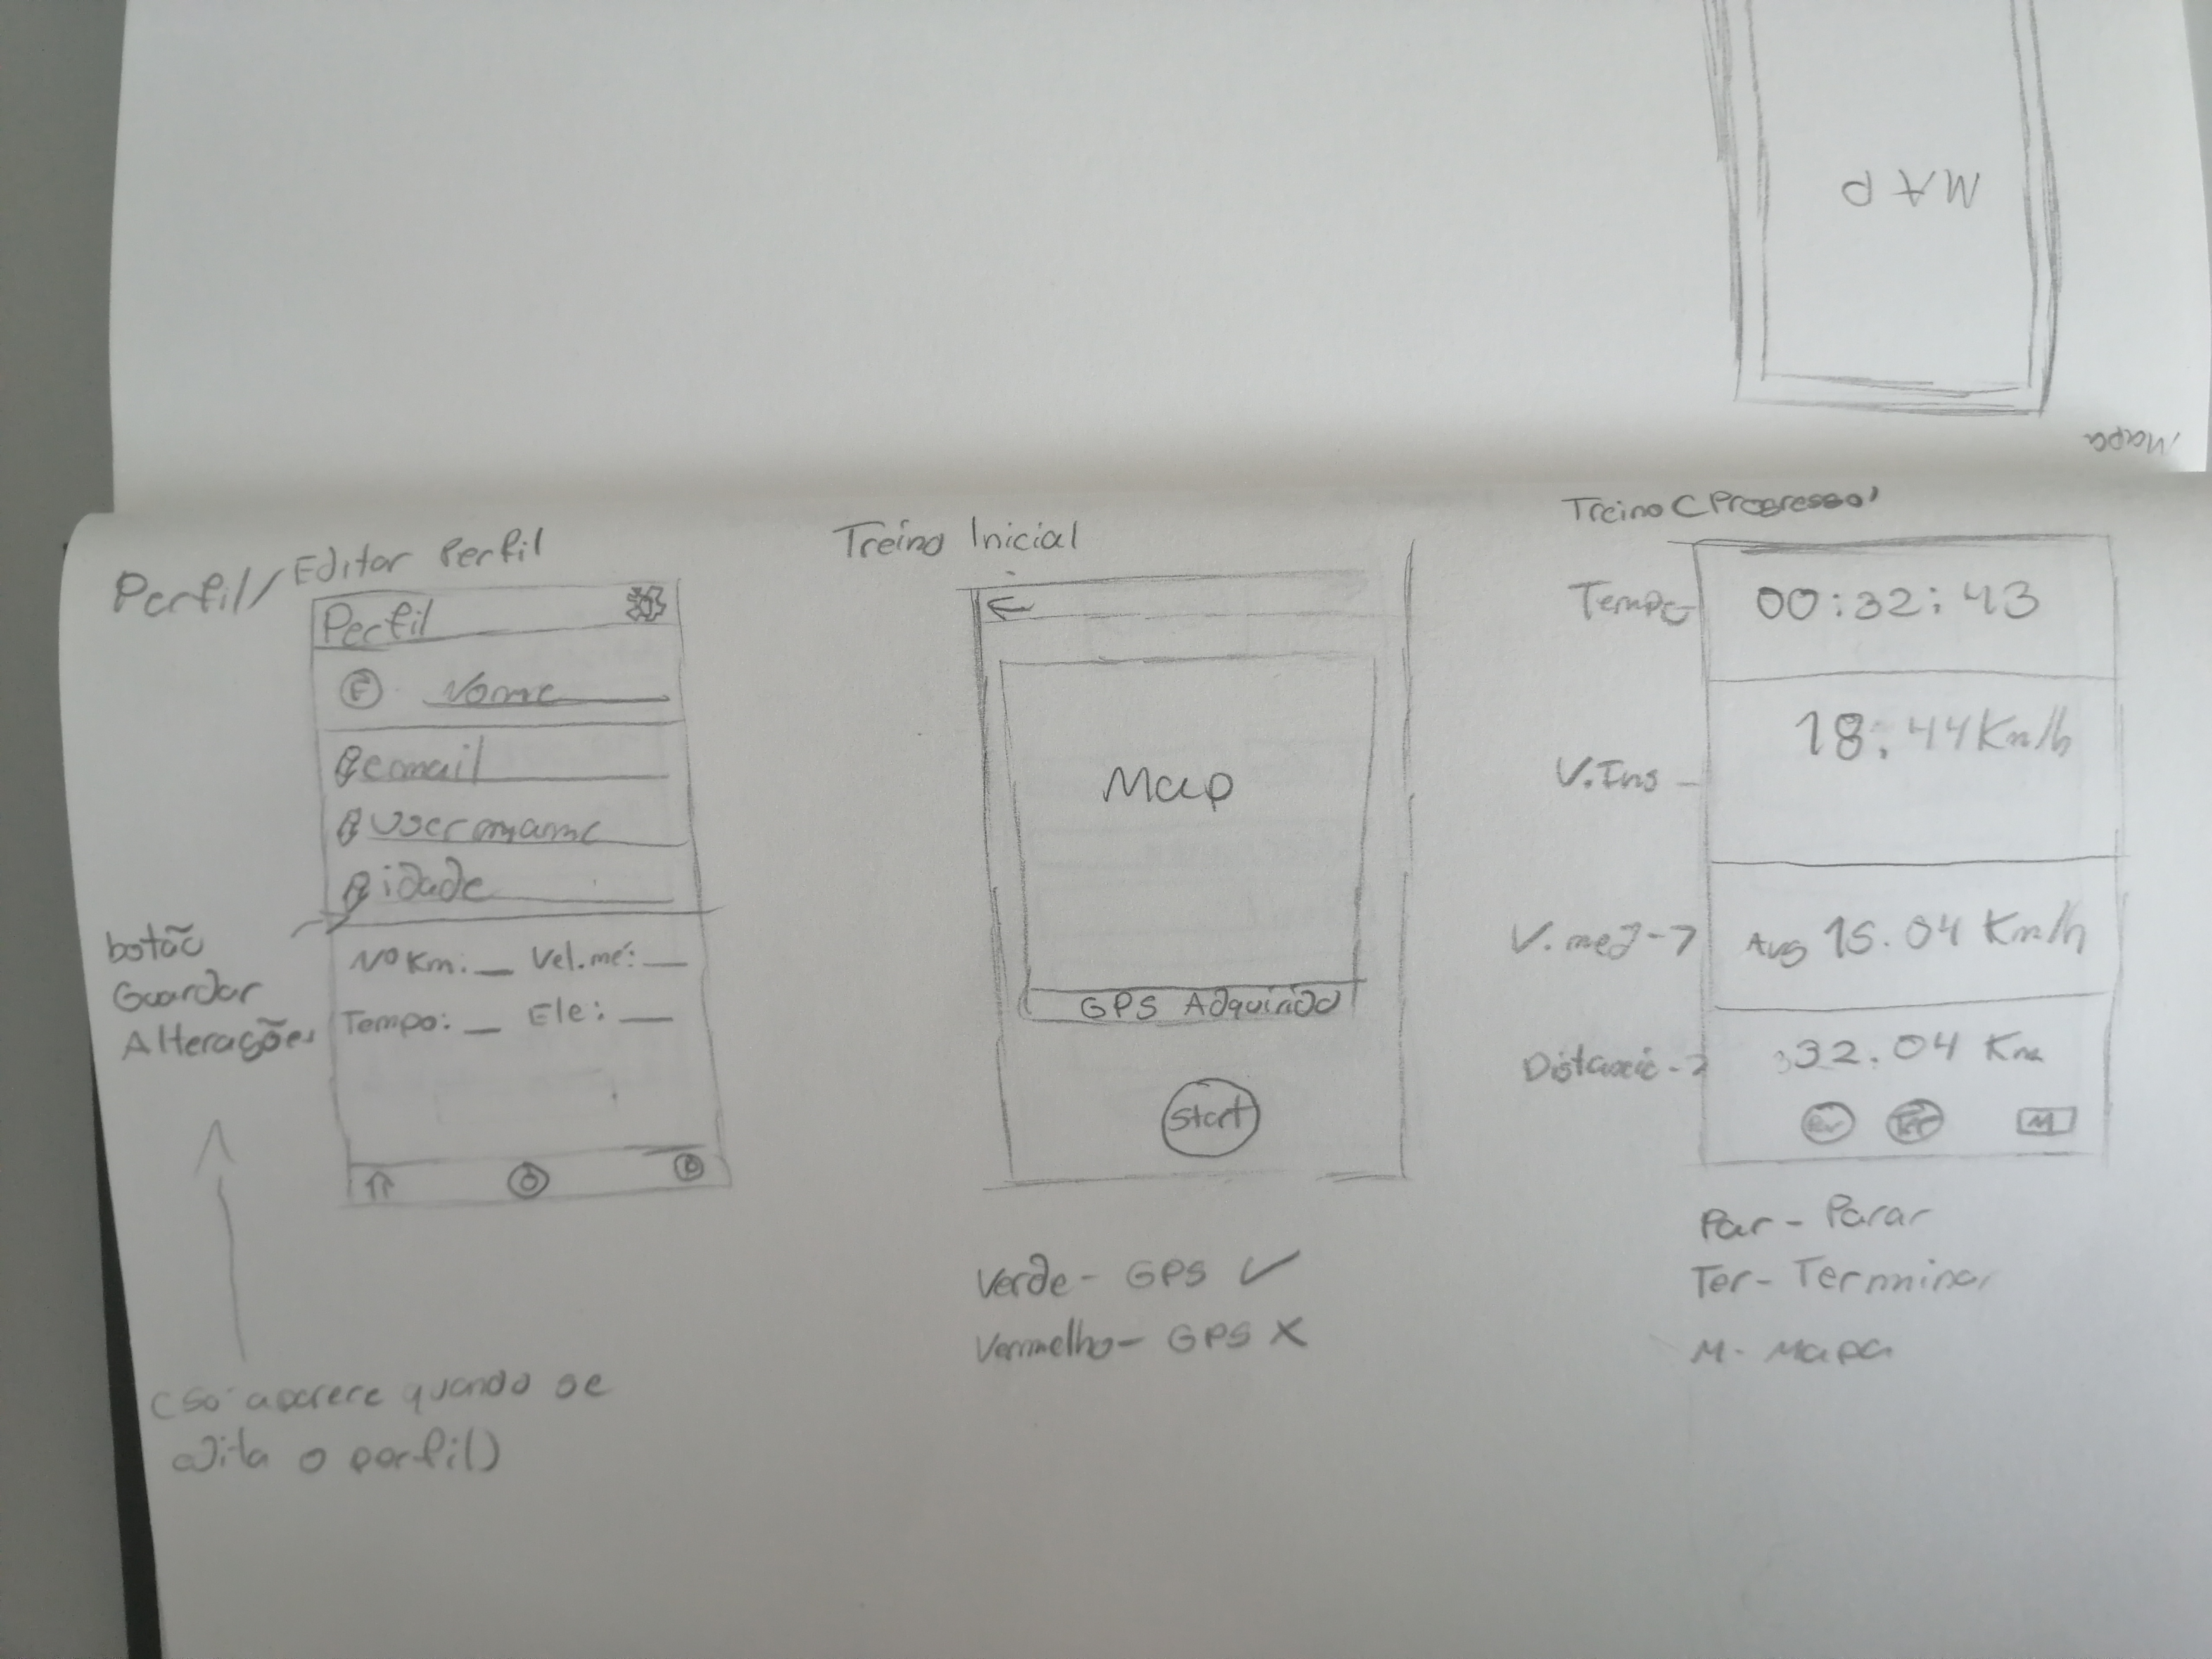 MAP
Mapa
Perfil/Editar Perfil
Perfil
F Nome
email
username
idade
Nº Km: __ Vel.mé: __
Tempo: __ Ele: __
botão
Guardar
Alterações
(só aparece quando se
edita o perfil)
Treino Inicial
Map
GPS Adquirido
Start
Verde - GPS ✓
Vermelho - GPS X
Treino (Progresso)
Tempo- 00:32:43
V.Ins - 18.44 Km/h
V.med-> Avg 15.04 Km/h
Distanci-> 32.04 Km
Par Ter M
Par - Parar
Ter - Terminar
M - Mapa